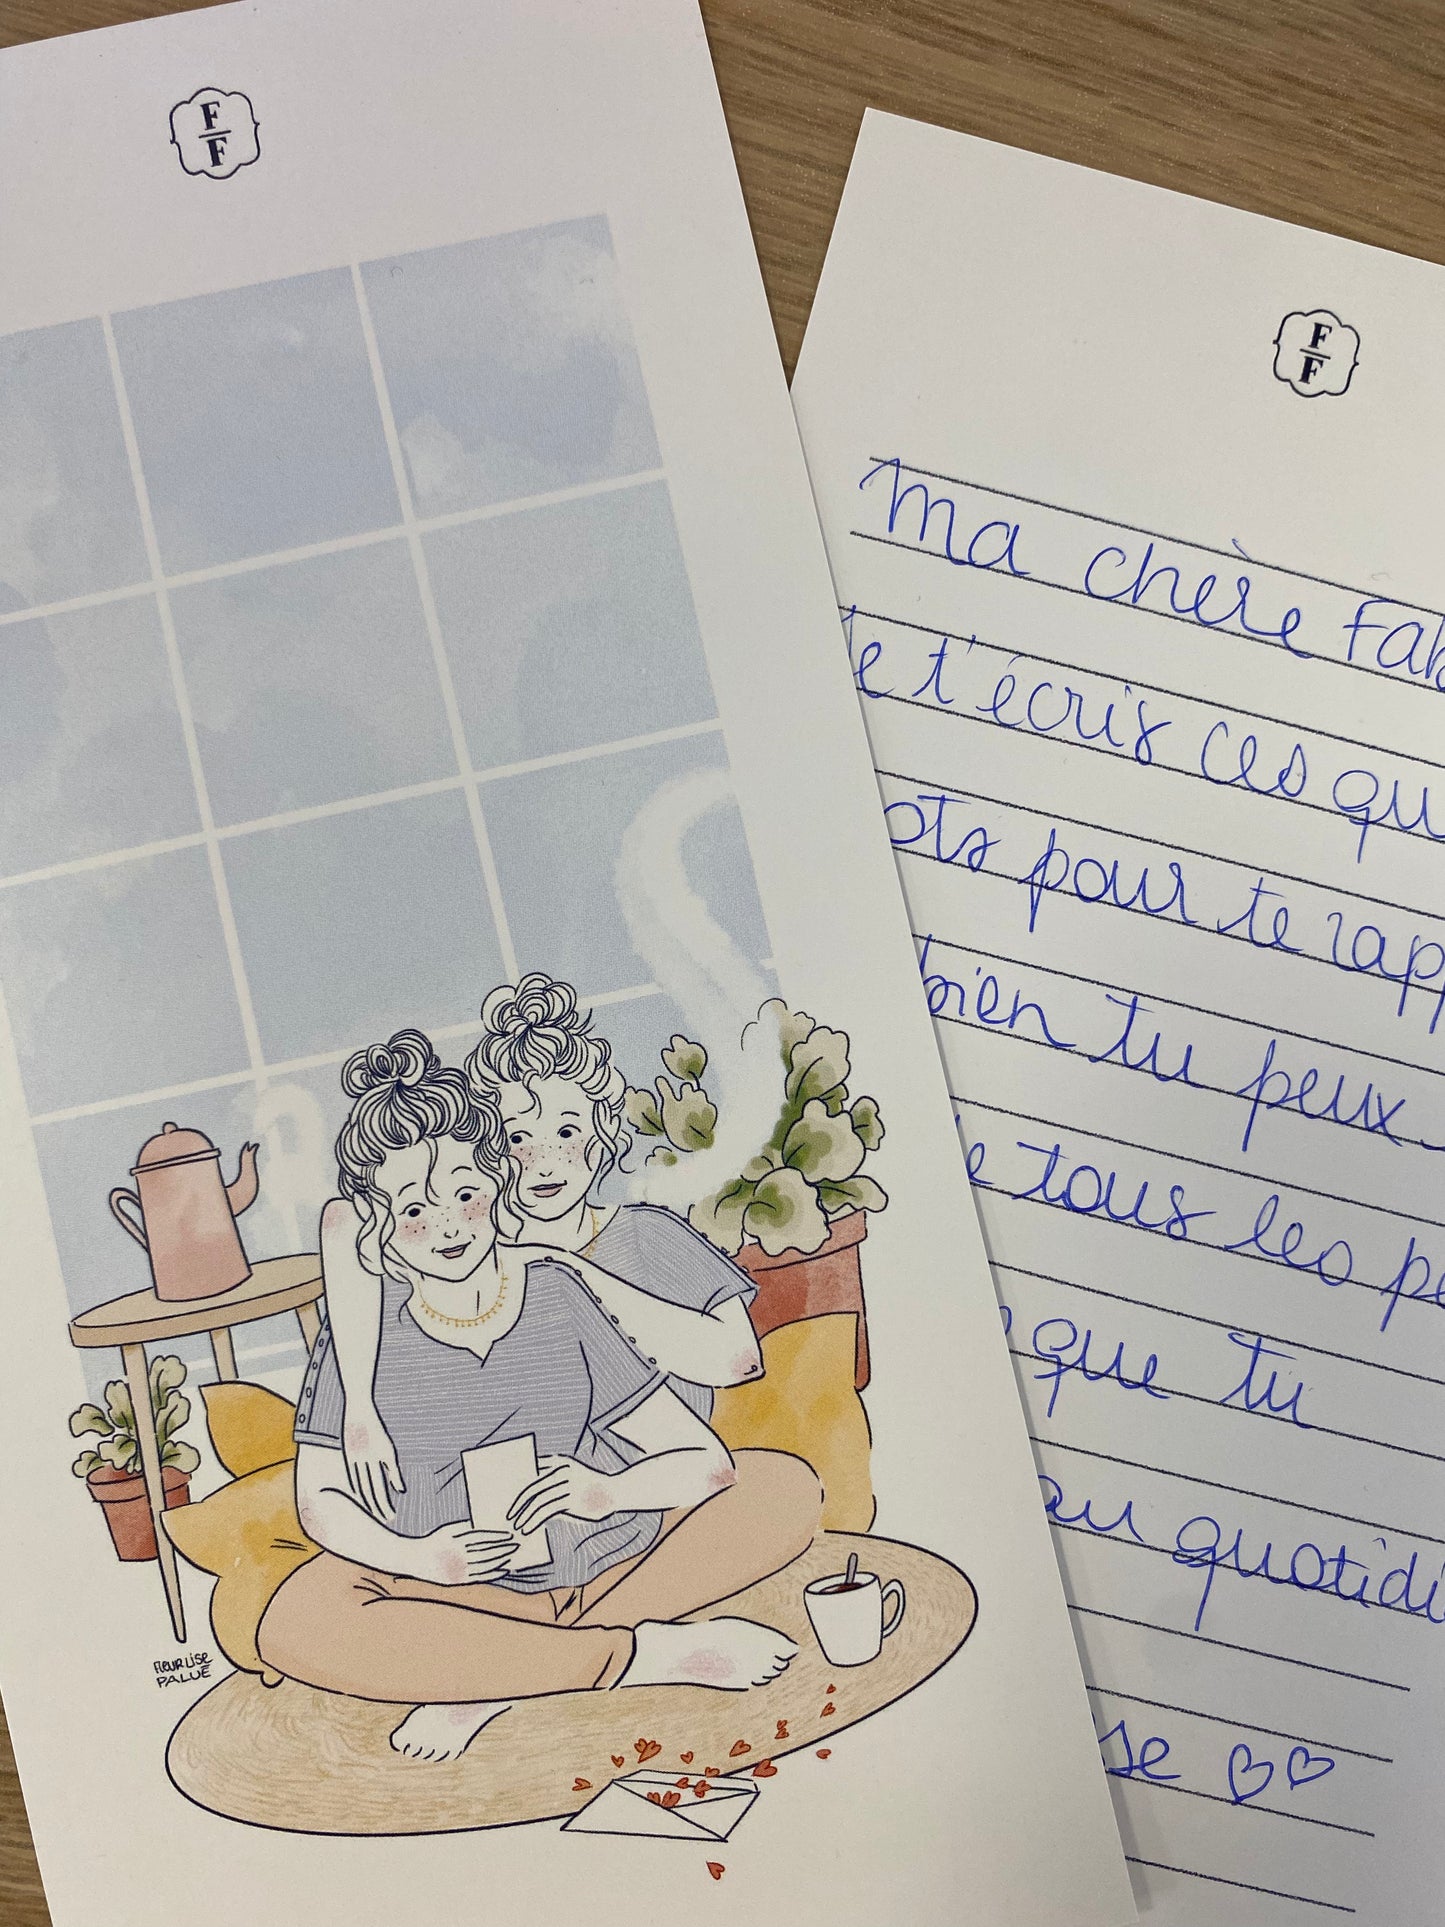 F
F
FleurLise
PALUE
F
F
Ma chère Fab
Je t'écris ces qu
ots pour te rapp
bien tu peux
e tous les pe
que tu
au quotidi
se ♡♡